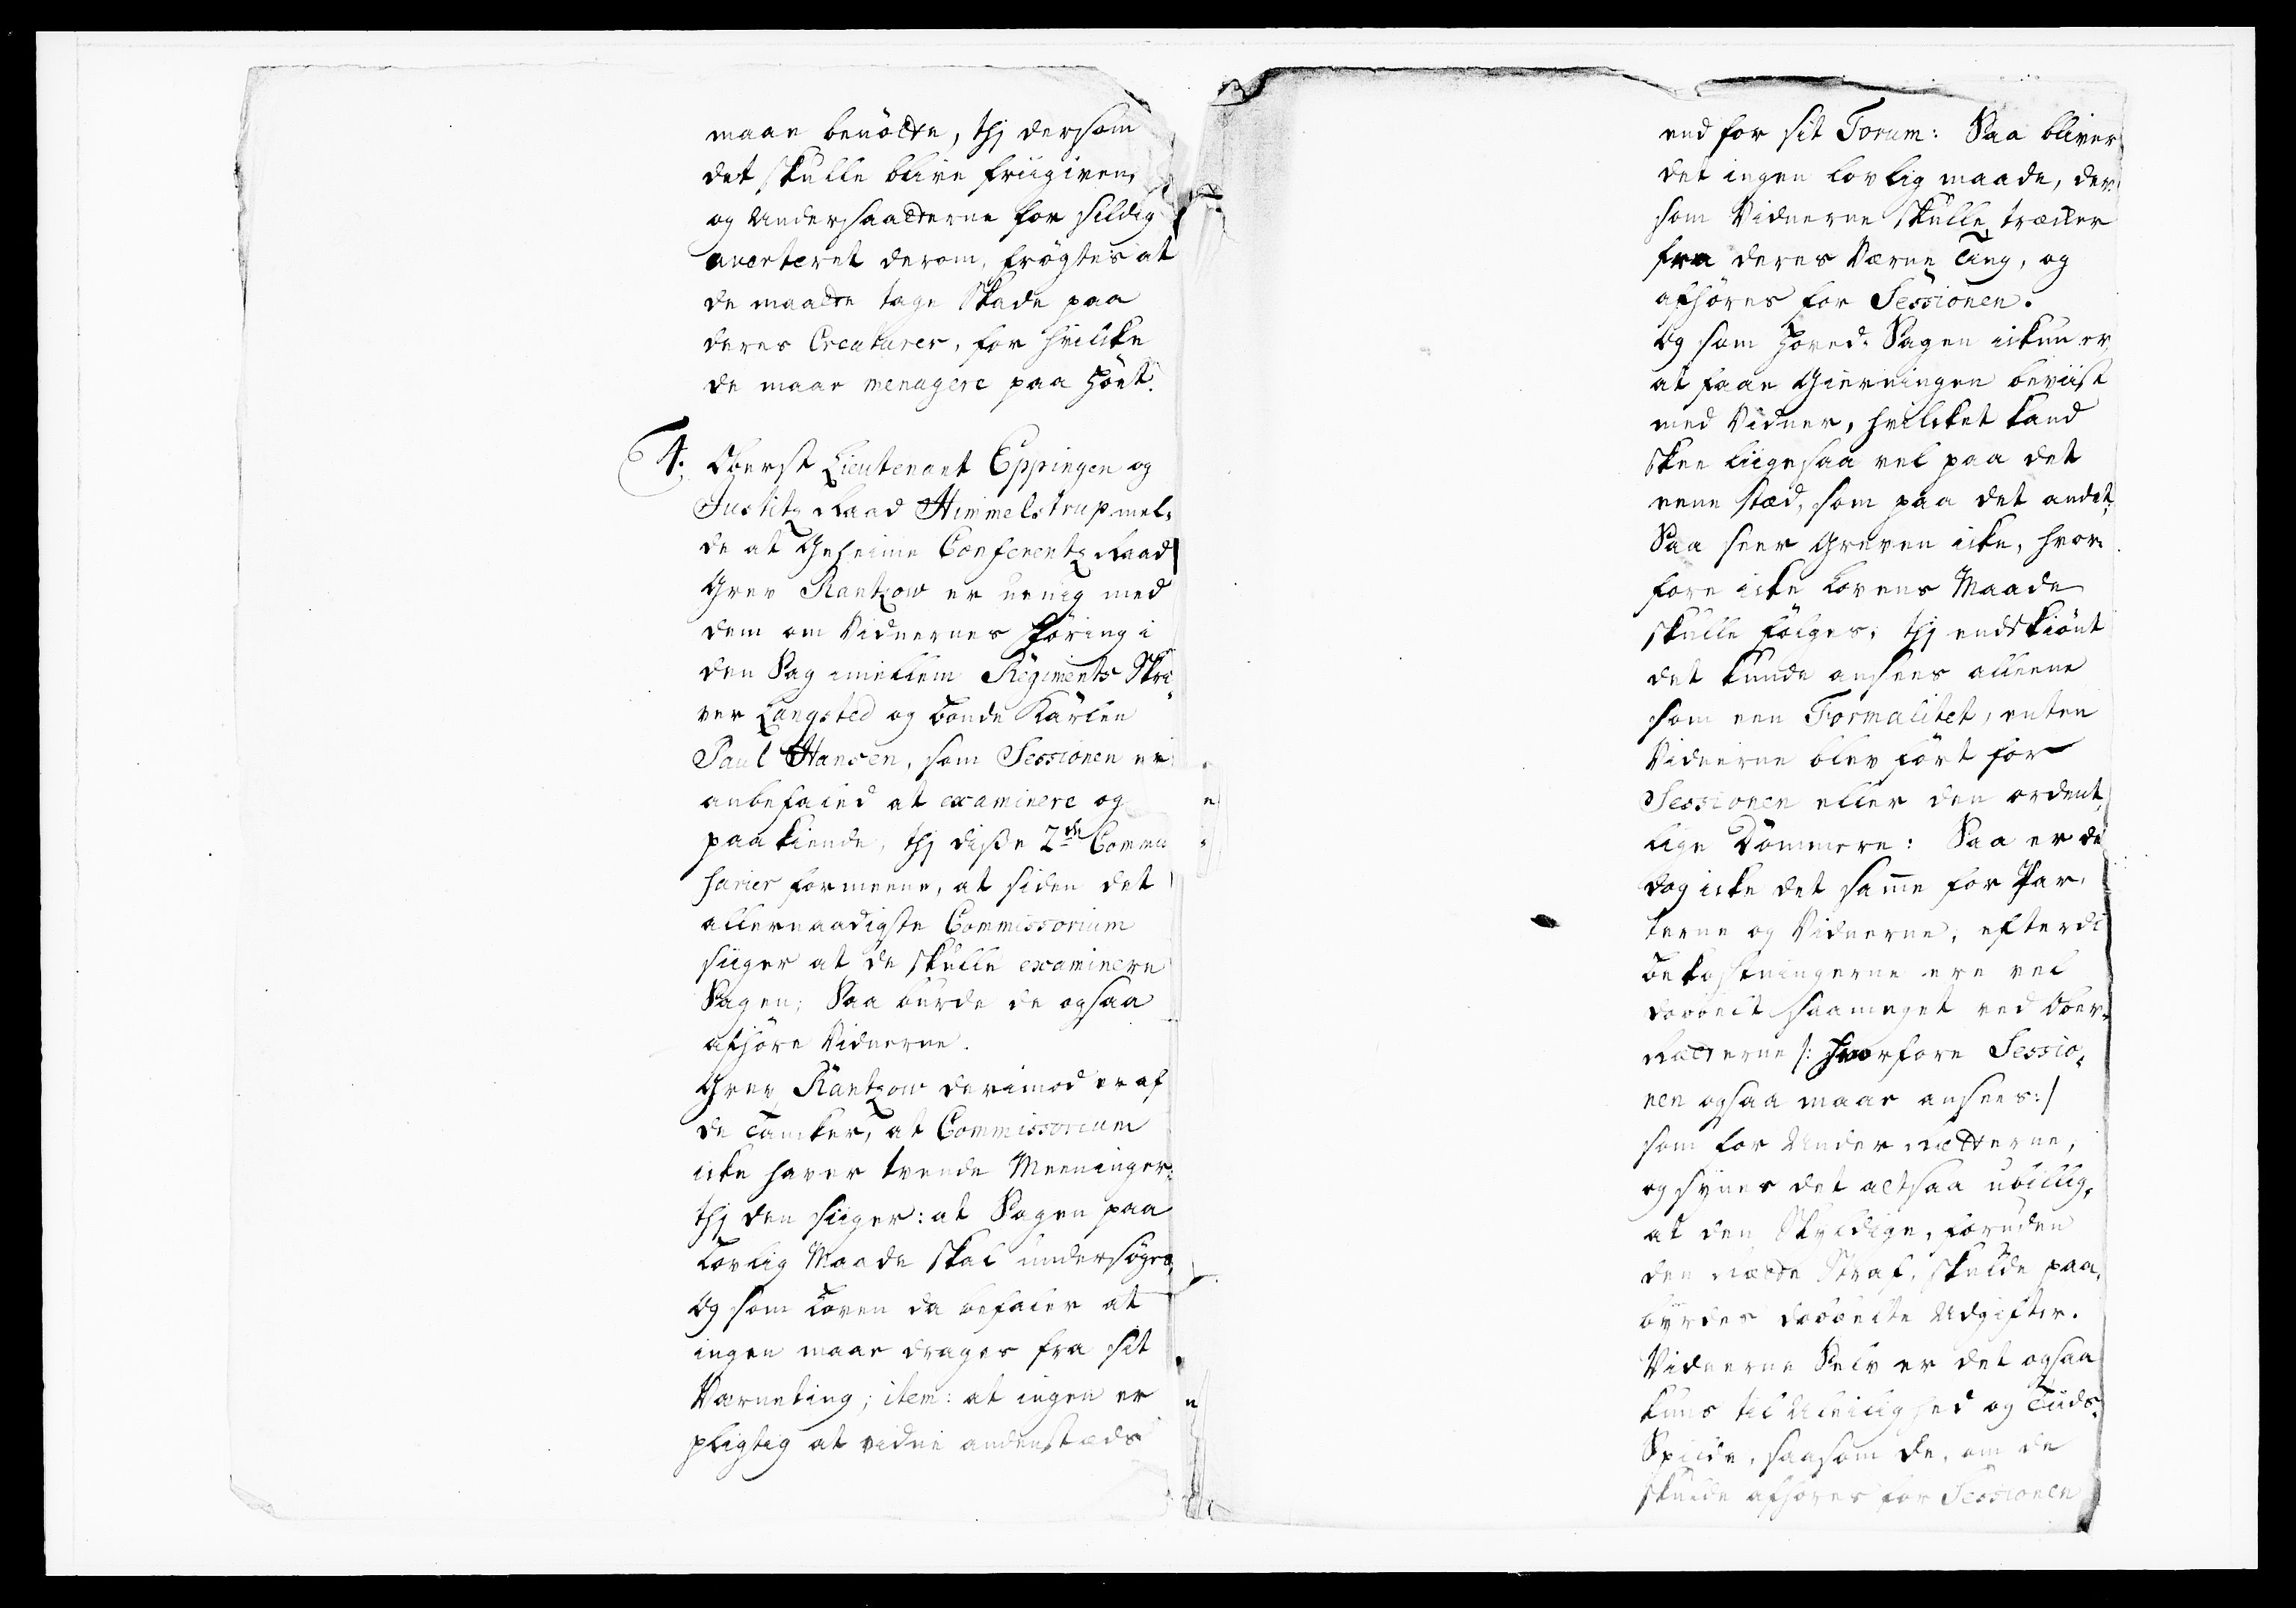 maae benötte, thj dersom
det skulle blive friigiven,
og Undersaatterne for sildig
averteret derom, frögtes at
de maatte tage Skade paa
deres Creaturer, for hvilcke
de maae menagere paa Höet.
4. Oberst Lieutenant Eppingen og
Justitz Raad Himmelstrup mel-
de at Geheime Conferentz Raad
Grev Rantzow er uenig med
dem om Vidnernes Föring i
den Sag imellem Regiments Skri-
ver Langsted og Bonde Karlen
Paul Hansen, som Sessionen er
anbefaled at examinere og
paakiende, thj disse 2de Commis
sarier formeene, at siden det
allernaadigste Commissorium
siiger at de skulle examinere
Sagen; Saa burde de ogsaa
afhöre Vidnerne.
Grev Rantzow derimod er af
de Tancker, at Commissorium
icke haver tvende Meeninger:
thj den siiger: at Sagen paa
Lovlig Maade skal undersöges,
Og som Loven da befaler at
ingen maae drages fra sit
Værneting; item: at ingen er
pligtig at vidne andenstæds
end for sit Forum: Saa bliver
det ingen lovlig maade, der-
som Vidnerne skulle trækkes
fra deres Værne Ting, og
afhöres for Sessionen.
Og som Hoved-Sagen ickun er
at faae Gierningen beviist
med Vidner, hvilcket kand
skee liigesaa vel paa det
eene stæd, som paa det andet;
Saa seer Greven icke, hvor-
fore icke Lovens Maade
skulle fölges; thj endskiönt
det kunde ansees alleene
som een Formalitet, enten
Vidnerne blev fört for
Sessionen eller den ordent-
lige Dömmere: Saa er de
dog icke det samme for Par-
terne og Vidnerne; efterdi
bekostningerne ere vel
dobbelt saameget ved Over-
Rætterne /: hvorfore Sessio-
nen ogsaa maae ansees :/
som for Under Rætterne,
og synes det altsaa ubillig,
at den Skyldige, foruden
den rætte Straf, skulde paa-
byrdes dobbelte Udgifter.
Vidnerne Selv er det ogsaa
kuns til Uleilighed og Tiids-
Spilde, saasom de, om de
skulde afhöres for Sessionen